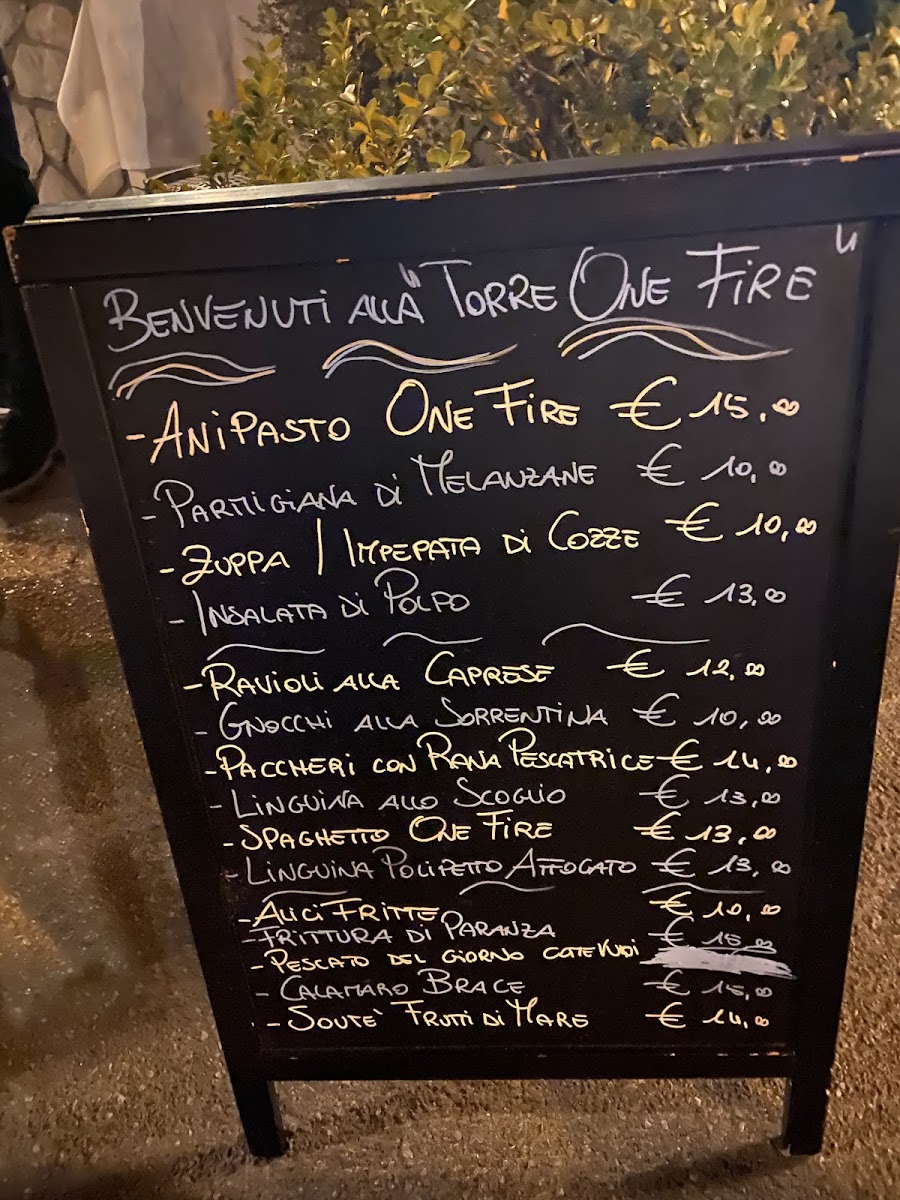 BENVENUTI ALLA "TORRE ONE FIRE"
- ANIPASTO ONE FIRE € 15,00
- PARMIGIANA DI MELANZANE € 10,00
- ZUPPA / IMPEPATA DI COZZE € 10,00
- INSALATA DI POLPO € 13,00
- RAVIOLI ALLA CAPRESE € 12,00
- GNOCCHI ALLA SORRENTINA € 10,00
- PACCHERI CON RANA PESCATRICE € 14,00
- LINGUINA ALLO SCOGLIO € 13,00
- SPAGHETTO ONE FIRE € 13,00
- LINGUINA POLIPETTO AFFOGATO € 13,00
- ALICI FRITTE € 10,00
- FRITTURA DI PARANZA € 15,00
- PESCATO DEL GIORNO
- CALAMARO BRACE € 15,00
- SOUTE' FRUTTI DI MARE € 14,00